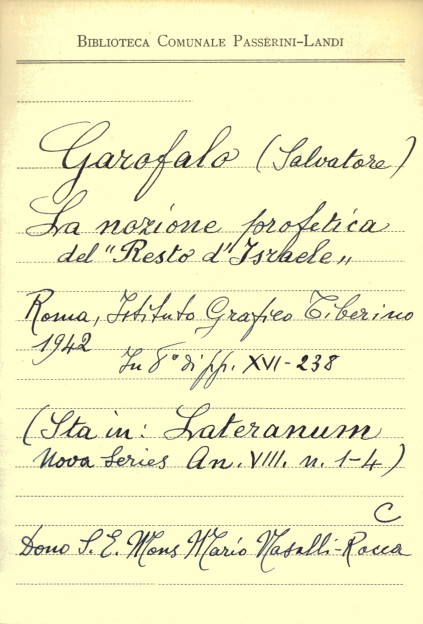 BIBLIOTECA COMUNALE PASSERINI-LANDI
Garofalo (Salvatore)
La nozione profetica
del "Resto d'Israele„
Roma, Istituto Grafico Tiberino
1942 In 8° di pp. XVI-238
(Sta in: Lateranum
Nova Series An. VIII. n. 1-4)
C
Dono S. E. Mons Mario Nasalli-Rocca